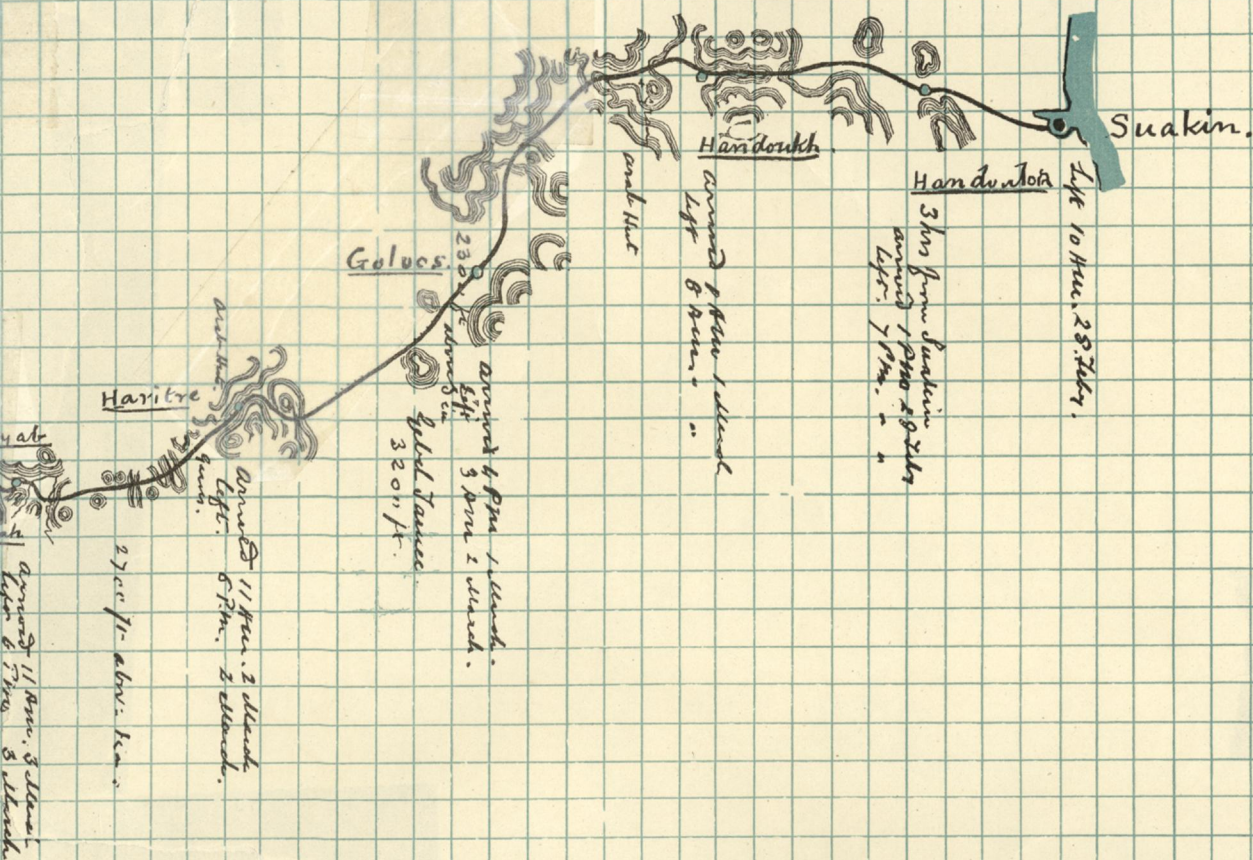 Suakin.
Left 10 Am. 28. Feby.
3 hrs from Suakin
arrived 1 Pm 28 Feby
left. 7 Pm. " "
Handoukh.
arrived 1 March
Left 8 Am. "
arab Hut
Golucs.
230 ft
above Sea
arrived 4 Pm 1 March.
Left 3 Am 2 March.
3200 ft.
arab Hut.
Haritre
arrived 11 Am. 2 March
left. 6 Pm. 2 March.
2700 ft above Sea.
yab
arrived 11 Am. 3 March
left 6 Pm 3 March